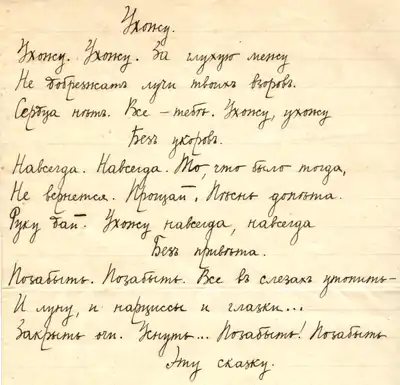 Ухожу.
Ухожу. Ухожу. За глухую межу
Не добрезжатъ лучи твоихъ взоровъ.
Сердца нѣтъ. Все – тебѣ. Ухожу, ухожу
Безъ укоровъ.
Навсегда. Навсегда. То, что было тогда,
Не вернется. Прощай. Пѣснь допѣта.
Руку дай. Ухожу навсегда, навсегда
Безъ привѣта.
Позабыть. Позабыть. Все въ слезахъ утопить –
И луну, и нарциссы и глазки...
Закрыть очи. Уснуть... Позабыть! Позабыть
Эту сказку.